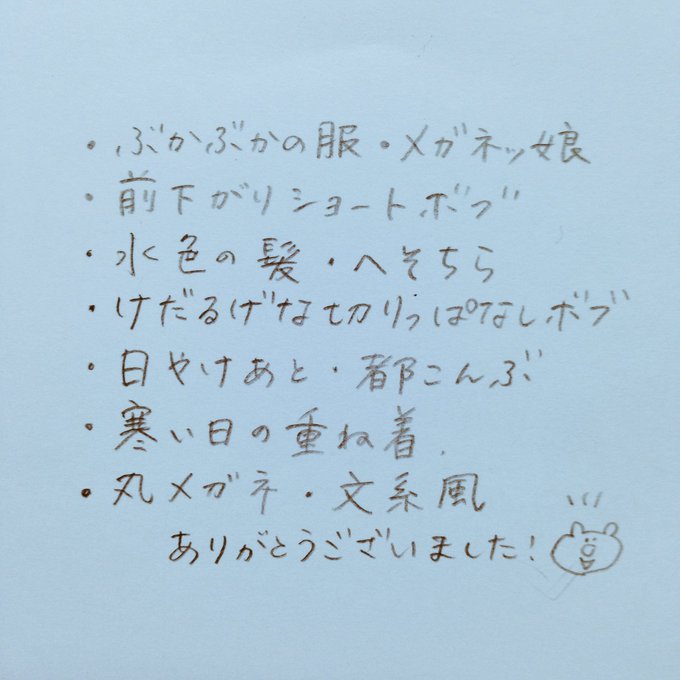 ・ぶかぶかの服・メガネッ娘
・前下がりショートボブ
・水色の髪・へそちら
・けだるげな切りっぱなしボブ
・日やけあと・都こんぶ
・寒い日の重ね着.
・丸メガネ・文系風
ありがとうございました!